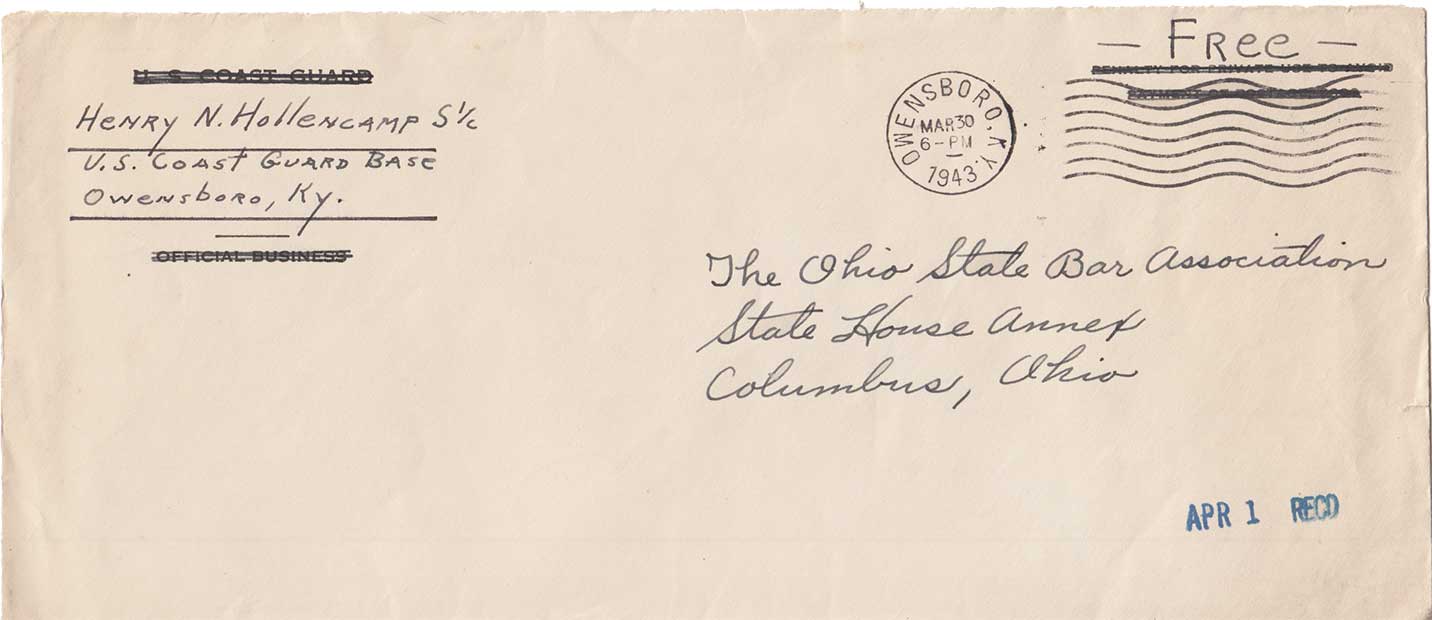 U. S. COAST GUARD
Henry N. Hollencamp S 1/c
U.S. Coast Guard Base
Owensboro, Ky.
OFFICIAL BUSINESS
— Free —
PENALTY FOR PRIVATE USE TO AVOID
PAYMENT OF POSTAGE, $300
OWENSBORO, KY.
MAR 30
6-PM
1943
The Ohio State Bar Association
State House Annex
Columbus, Ohio
APR 1 RECD